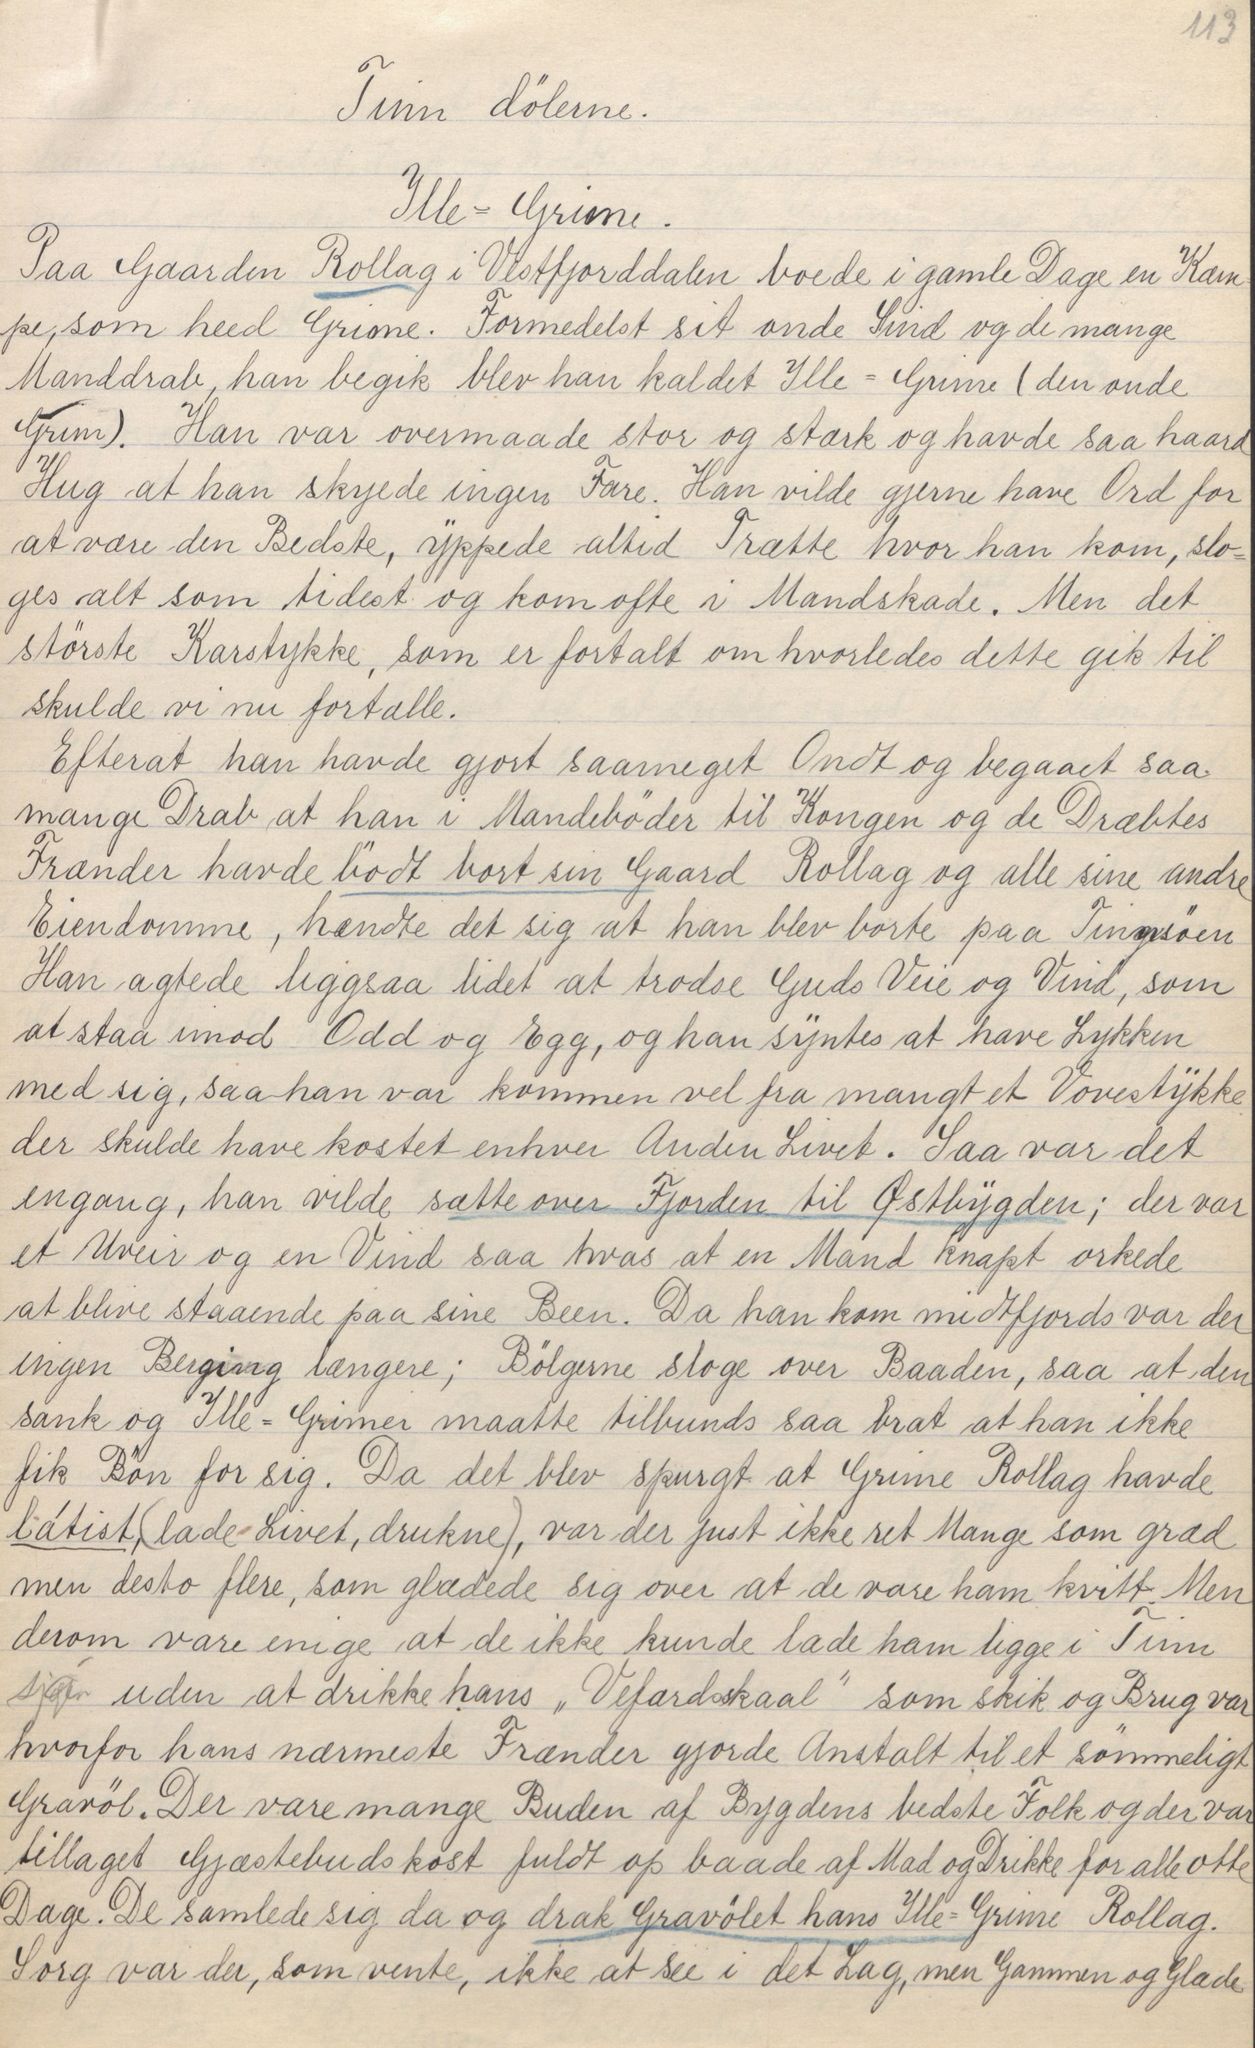 113
Tinn dölerne.
Ille= Grime.
Paa Gaarden Rollag i Vestfjorddalen boede i gamle Dage en Kæm
pe, som heed Grime. Formedelst sit onde Sind og de mange
Manddrab, han begik blev han kaldet Ille= Grime (den onde
Grim). Han var overmaade stor og stærk og havde saa haard
Hug at han skyede ingen Fare. Han vilde gjerne have Ord for
at være den Bedste, yppede altid Trætte hvor han kom, slo=
ges alt som tidest og kom ofte i Mandskade. Men det
störste Karstykke, som er fortalt om hvorledes dette gik til
skulde vi nu fortælle.
Efterat han havde gjort saameget Ondt og begaaet saa
mange Drab at han i Mandeböder til Kongen og de Dræbtes
Frænder havde bödt bort sin Gaard Rollag og alle sine andre
Eiendomme, hændte det sig at han blev borte paa Tinnsöen
Han agtede liggsaa lidet at trodse Guds Veie og Vind, som
at staa imod Odd og Egg, og han syntes at have Lykken
med sig, saa han var kommen vel fra mangt et Vovestykke
der skulde have kostet enhver Anden Livet. Saa var det
engang, han vilde sætte over Fjorden til Østbygden; der var
et Uveir og en Vind saa hvas at en Mand knapt orkede
at blive staaende paa sine Been. Da han kom midtfjords var der
ingen Berging længere; Bölgerne sloge over Baaden, saa at den
sank og Ille= Grimer maatte tilbunds saa brat at han ikke
fik Bön for sig. Da det blev spurgt at Grime Rollag havde
látist, (lade Livet, drukne), var der just ikke ret Mange som græd
men desto flere, som glædede sig over at de vare ham kvitt. Men
derom vare enige at de ikke kunde lade ham ligge i Tinn
sjøen uden at drikke hans „Vefærdsskaal" som skik og Brug var
hvorfor hans nærmeste Frænder gjorde Anstalt til et sömmeligt
Gravöl. Der vare mange Buden af Bygdens bedste Folk og der var
tillaget Gjæstebudskost fuldt op baade af Mad og Drikke for alle otte
Dage. De samlede sig da og drak Gravölet hans Ille= Grime Rollag.
Sorg var der, som vente, ikke at see i det Lag, men Gammen og Glæde